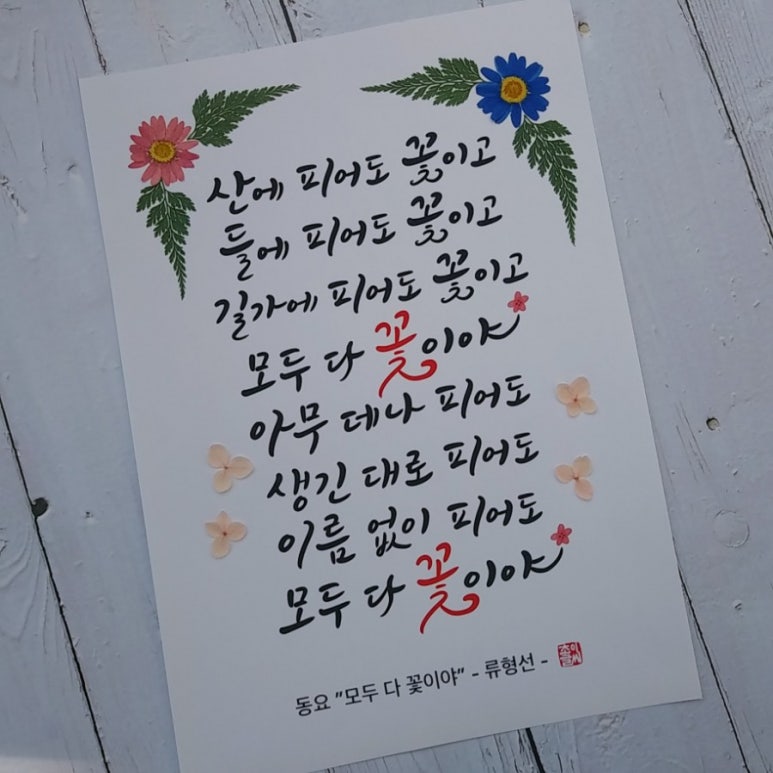 산에 피어도 꽃이고
들에 피어도 꽃이고
길가에 피어도 꽃이고
모두 다 꽃이야
아무 데나 피어도
생긴 대로 피어도
이름 없이 피어도
모두 다 꽃이야
동요 "모두 다 꽃이야" - 류형선 -